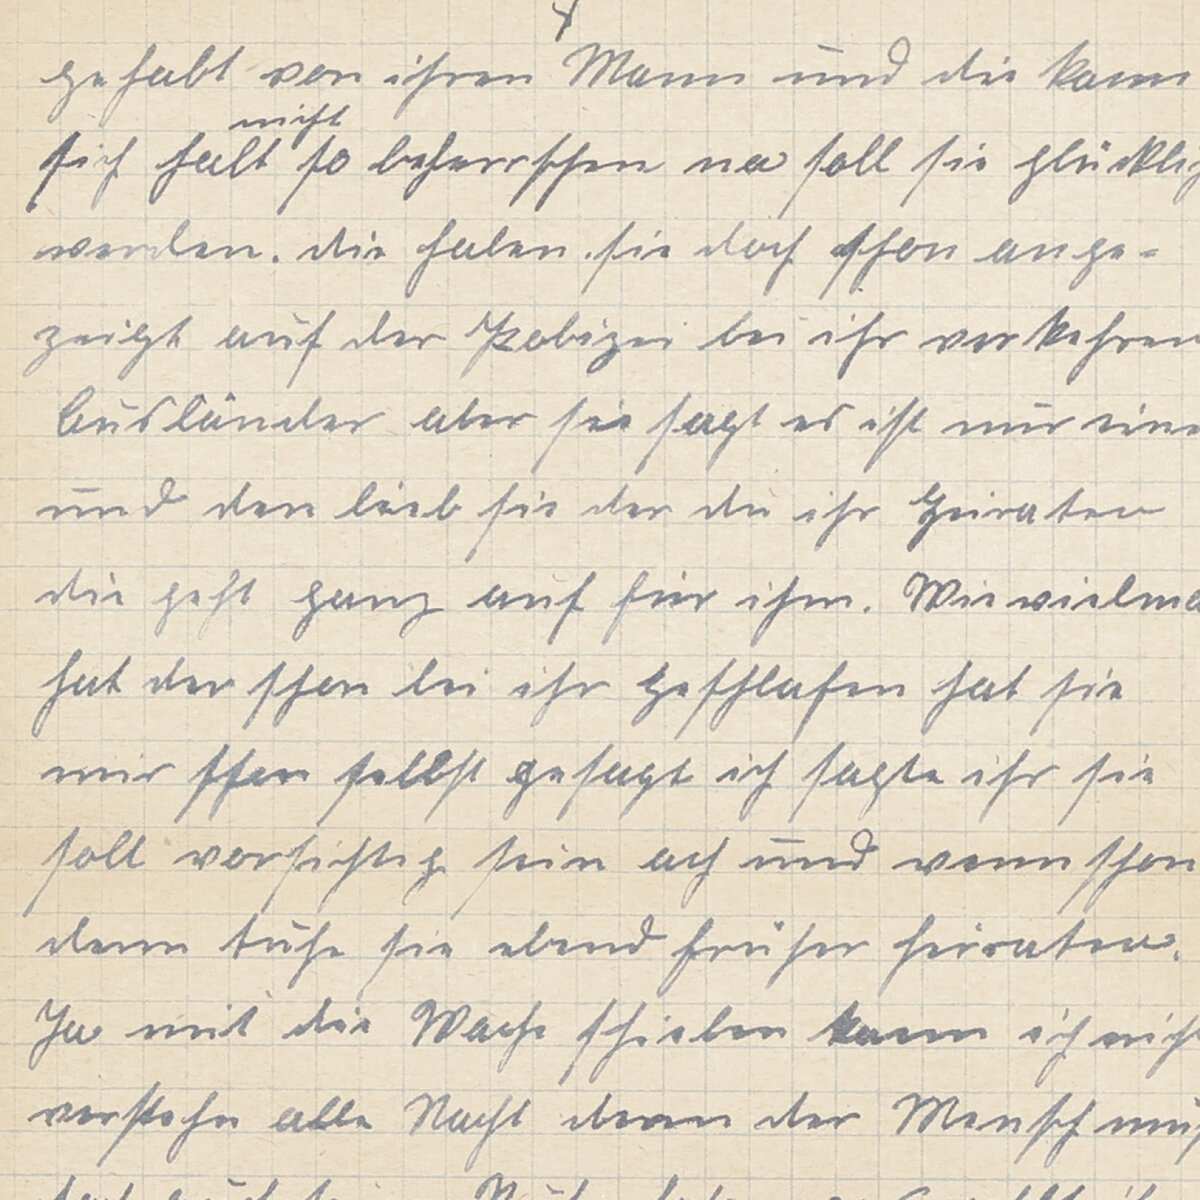 gehabt von ihren Mann und die kann
nicht
sich halt so beherrschen na soll sie glücklich
werden. die haben sie doch schon ange-
zeigt auf der Polizei bei ihr verkehren
Ausländer aber sie sagt es ist nur eine
und den lieb sie der du ihr Heiraten
die geht ganz auf für ihm. Wievielma
hat der schon bei ihr geschlafen hat sie
mir schon selbst gesagt ich sagte ihr sie
soll vorsichtig sein ach und wenn schon
denn tuhe sie ebend früher heiraten.
Ja mit die Wache schieben kann ich nich
verstehn alle Nacht denn der Mensch muß